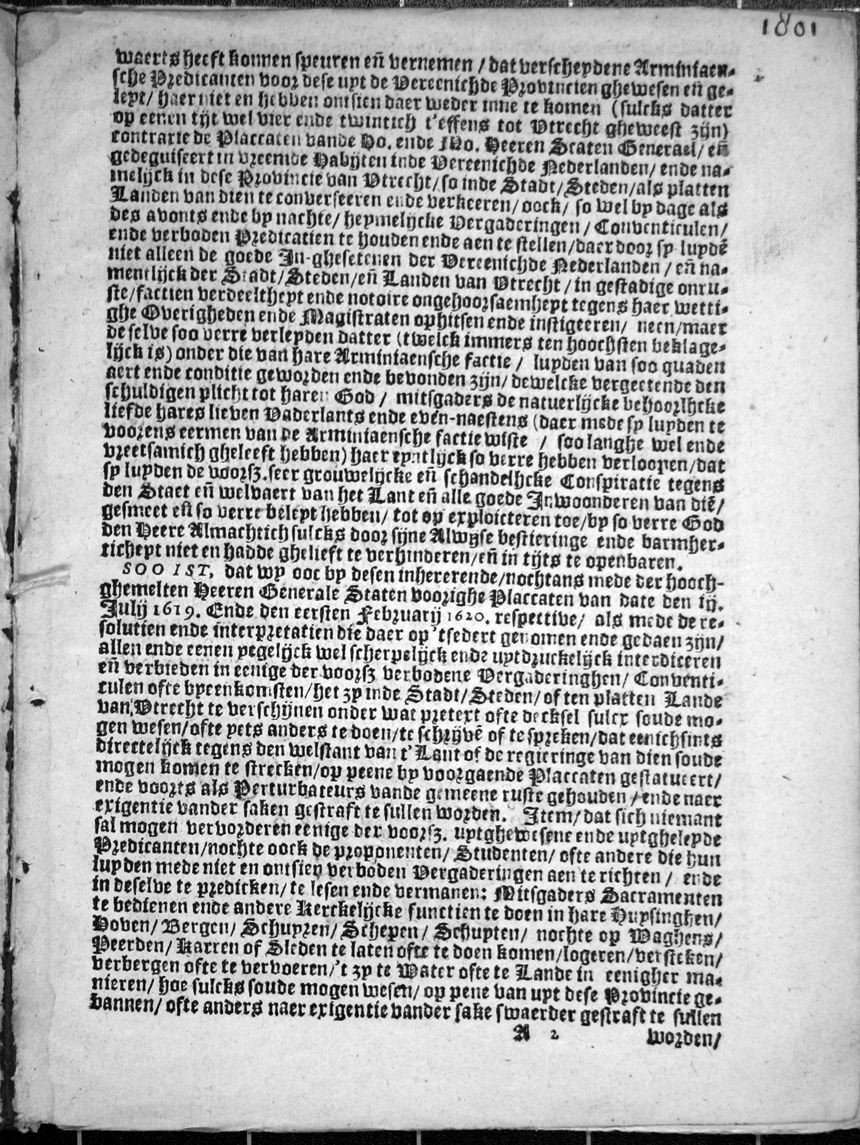 1801
waerts heeft konnen speuren eñ vernemen / dat verscheydene Arminiaen-
sche Predicanten voor dese uyt de Vereenichde Provincien ghewesen eñ ge-
leyt / haer niet en hebben ontsien daer weder inne te komen (sulcks datter
op eenen tijt wel vier ende twintich t'effens tot Vtrecht gheweest zijn)
contrarie de Placcaten vande Ho. ende Mo. Heeren Staten Generael / eñ
gedeguiseert in vreemde Habijten inde Vereenichde Nederlanden / ende na-
melijck in dese Provincie van Vtrecht / so inde Stadt / Steden / als platten
Landen van dien te converseeren ende verkeeren / oock / so wel by dage als
des avonts ende by nachte / heymelijcke Vergaderingen / Conventiculen /
ende verboden Predicatien te houden ende aen te stellen / daer door sy luydẽ
niet alleen de goede In-ghesetenen der Vereenichde Nederlanden / eñ na-
mentlijck der Stadt / Steden / eñ Landen van Vtrecht / in gestadige onru-
ste / factien verdeeltheyt ende notoire ongehoorsaemheyt tegens haer wetti-
ghe Overigheden ende Magistraten ophitsen ende instigeeren / neen / maer
de selve soo verre verleyden datter (twelck immers ten hoochsten beklage-
lijck is) onder die van hare Arminiaensche factie / luyden van soo quaden
aert ende conditie geworden ende bevonden zijn / dewelcke vergeetende den
schuldigen plicht tot haren God / mitsgaders de natuerlijcke behoorlijcke
liefde hares lieven Vaderlants ende even-naestens (daer mede sy luyden te
voorens eermen van de Arminiaensche factie wiste / soo langhe wel ende
vreetsamich gheleeft hebben) haer eyntlijck so verre hebben verloopen / dat
sy luyden de voorsz. seer grouwelijcke eñ schandelijcke Conspiratie tegens
den Staet eñ welvaert van het Lant eñ alle goede Inwoonderen van diẽ /
gesmeet eñ so verre beleyt hebben / tot op exploicteren toe / by so verre God
den Heere Almachtich sulcks door sijne Alwijse bestieringe ende barmher-
tichept niet en hadde ghelieft te verhinderen / eñ in tijts te openbaren.
SOO IST, dat wy ooc by desen inhererende / nochtans mede der hooch-
ghemelten Heeren Generale Staten voorighe Placcaten van date den iij.
Julij 1619. Ende den eersten Februarij 1620. respective / als mede de re-
solutien ende interpretatien die daer op 'tsedert genomen ende gedaen zijn /
allen ende eenen yegelijck wel scherpelijck ende uytdruckelijck interdiceren
eñ verbieden in eenige der voorsz verbodene Vergaderinghen / Conventi-
culen ofte byeenkomsten / het zy inde Stadt / Steden / of ten platten Lande
van Vtrecht te verschijnen onder wat pretext ofte decksel sulcx soude mo-
gen wesen / ofte yets anders te doen / te schrijvẽ of te spreken / dat eenichsints
directelijck tegens den welstant van t'Lant of de regieringe van dien soude
mogen komen te strecken / op peene by voorgaende Placcaten gestatueert /
ende voorts als Perturbateurs vande gemeene ruste gehouden / ende naer
exigentie vander saken gestraft te sullen worden. Item / dat sich niemant
sal mogen vervorderen eenige der voorsz. uytghewesene ende uytgheleyde
Predicanten / nochte oock de proponenten / Studenten / ofte andere die hun
luyden mede niet en ontsien verboden Vergaderingen aen te richten / ende
in deselve te predicken / te lesen ende vermanen: Mitsgaders Sacramenten
te bedienen ende andere Kerckelijcke functien te doen in hare Huysinghen /
Hoven / Bergen / Schuyren / Schepen / Schuyten / nochte op Waghens /
Peerden / Karren of Sleden te laten ofte te doen komen / logeren / versteken /
verbergen ofte te vervoeren / 't zy te Water ofte te Lande in eenigher ma-
nieren / hoe sulcks soude mogen wesen / op pene van uyt dese Provincie ge-
bannen / ofte anders naer exigentie vander sake swaerder gestraft te sullen
A 2 worden /